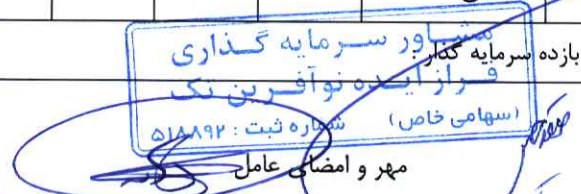 مشاور سرمایه گذاری
بازده سرمایه گذار:
فراز ایده نوآفرین تک
(سهامی خاص) شماره ثبت: ۵۱۸۸۹۲
مهر و امضای عامل